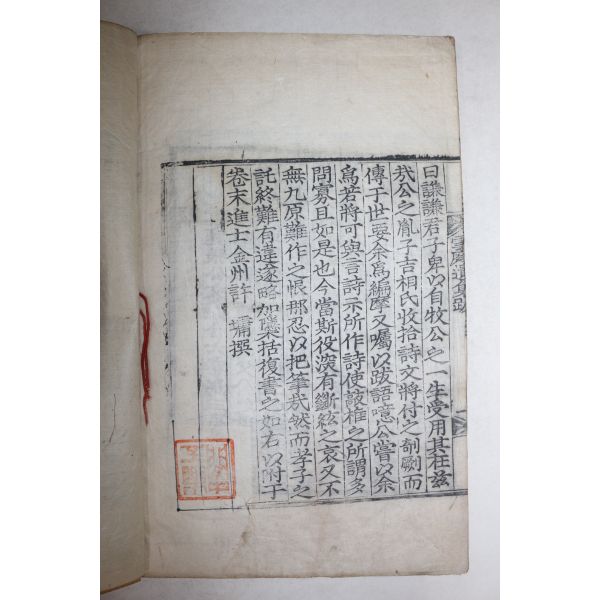 曰謙謙君子卑以自牧公之一生受用其在兹
我公之胤子吉相氏收拾詩文將付之剞劂而
傳于世要余爲編摩又囑以跋語噫公嘗以余
爲若將可與言詩示所作詩使敲推之所謂多
問寡且如是也今當斯役深有斷絃之哀又不
無九原難作之悵那忍以把筆爲哉然而孝子之
託終難有違遂略加櫽括復書之如右以附于
卷末進士金州許𤲟撰